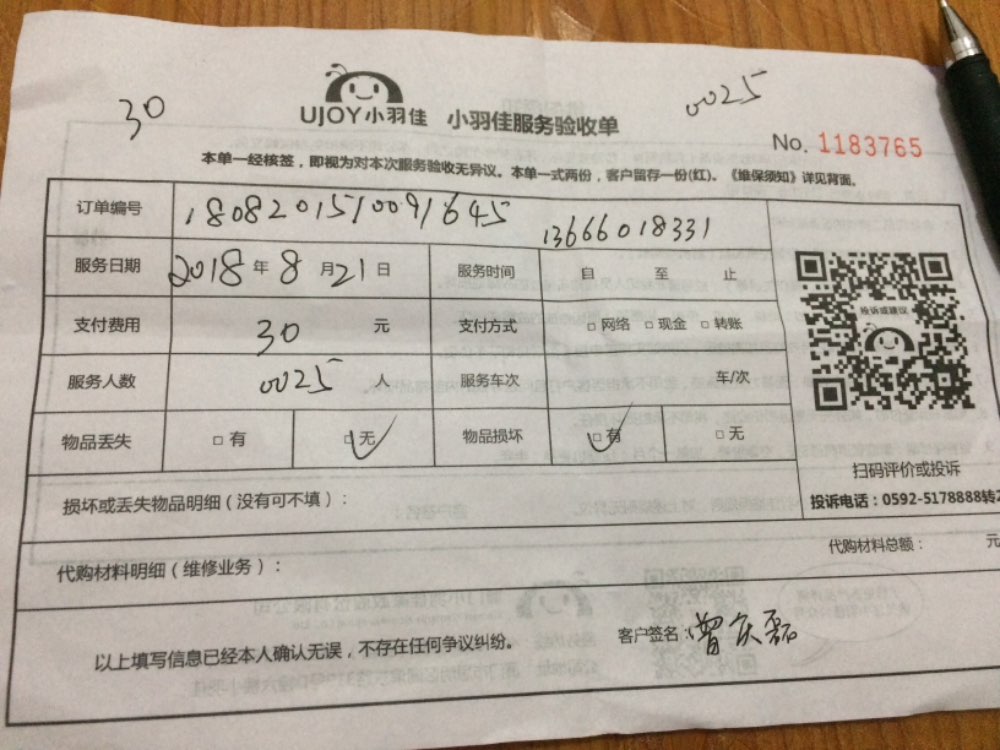 30
0025
UJOY小羽佳 小羽佳服务验收单
No. 1183765
本单一经核签，即视为对本次服务验收无异议。本单一式两份，客户留存一份(红)。《维保须知》详见背面。
订单编号 1808201510091645 13666018331
服务日期 2018年8月21日 服务时间 自 至 止
投诉或建议
支付费用 30 元 支付方式 □网络 □现金 □转账
服务人数 0025 人 服务车次 车/次
物品丢失 □有 □无 物品损坏 □有 □无
扫码评价或投诉
损坏或丢失物品明细（没有可不填）：
投诉电话：0592-5178888转2
代购材料明细（维修业务）： 代购材料总额： 元
以上填写信息已经本人确认无误，不存在任何争议纠纷。 客户签名：曾庆磊